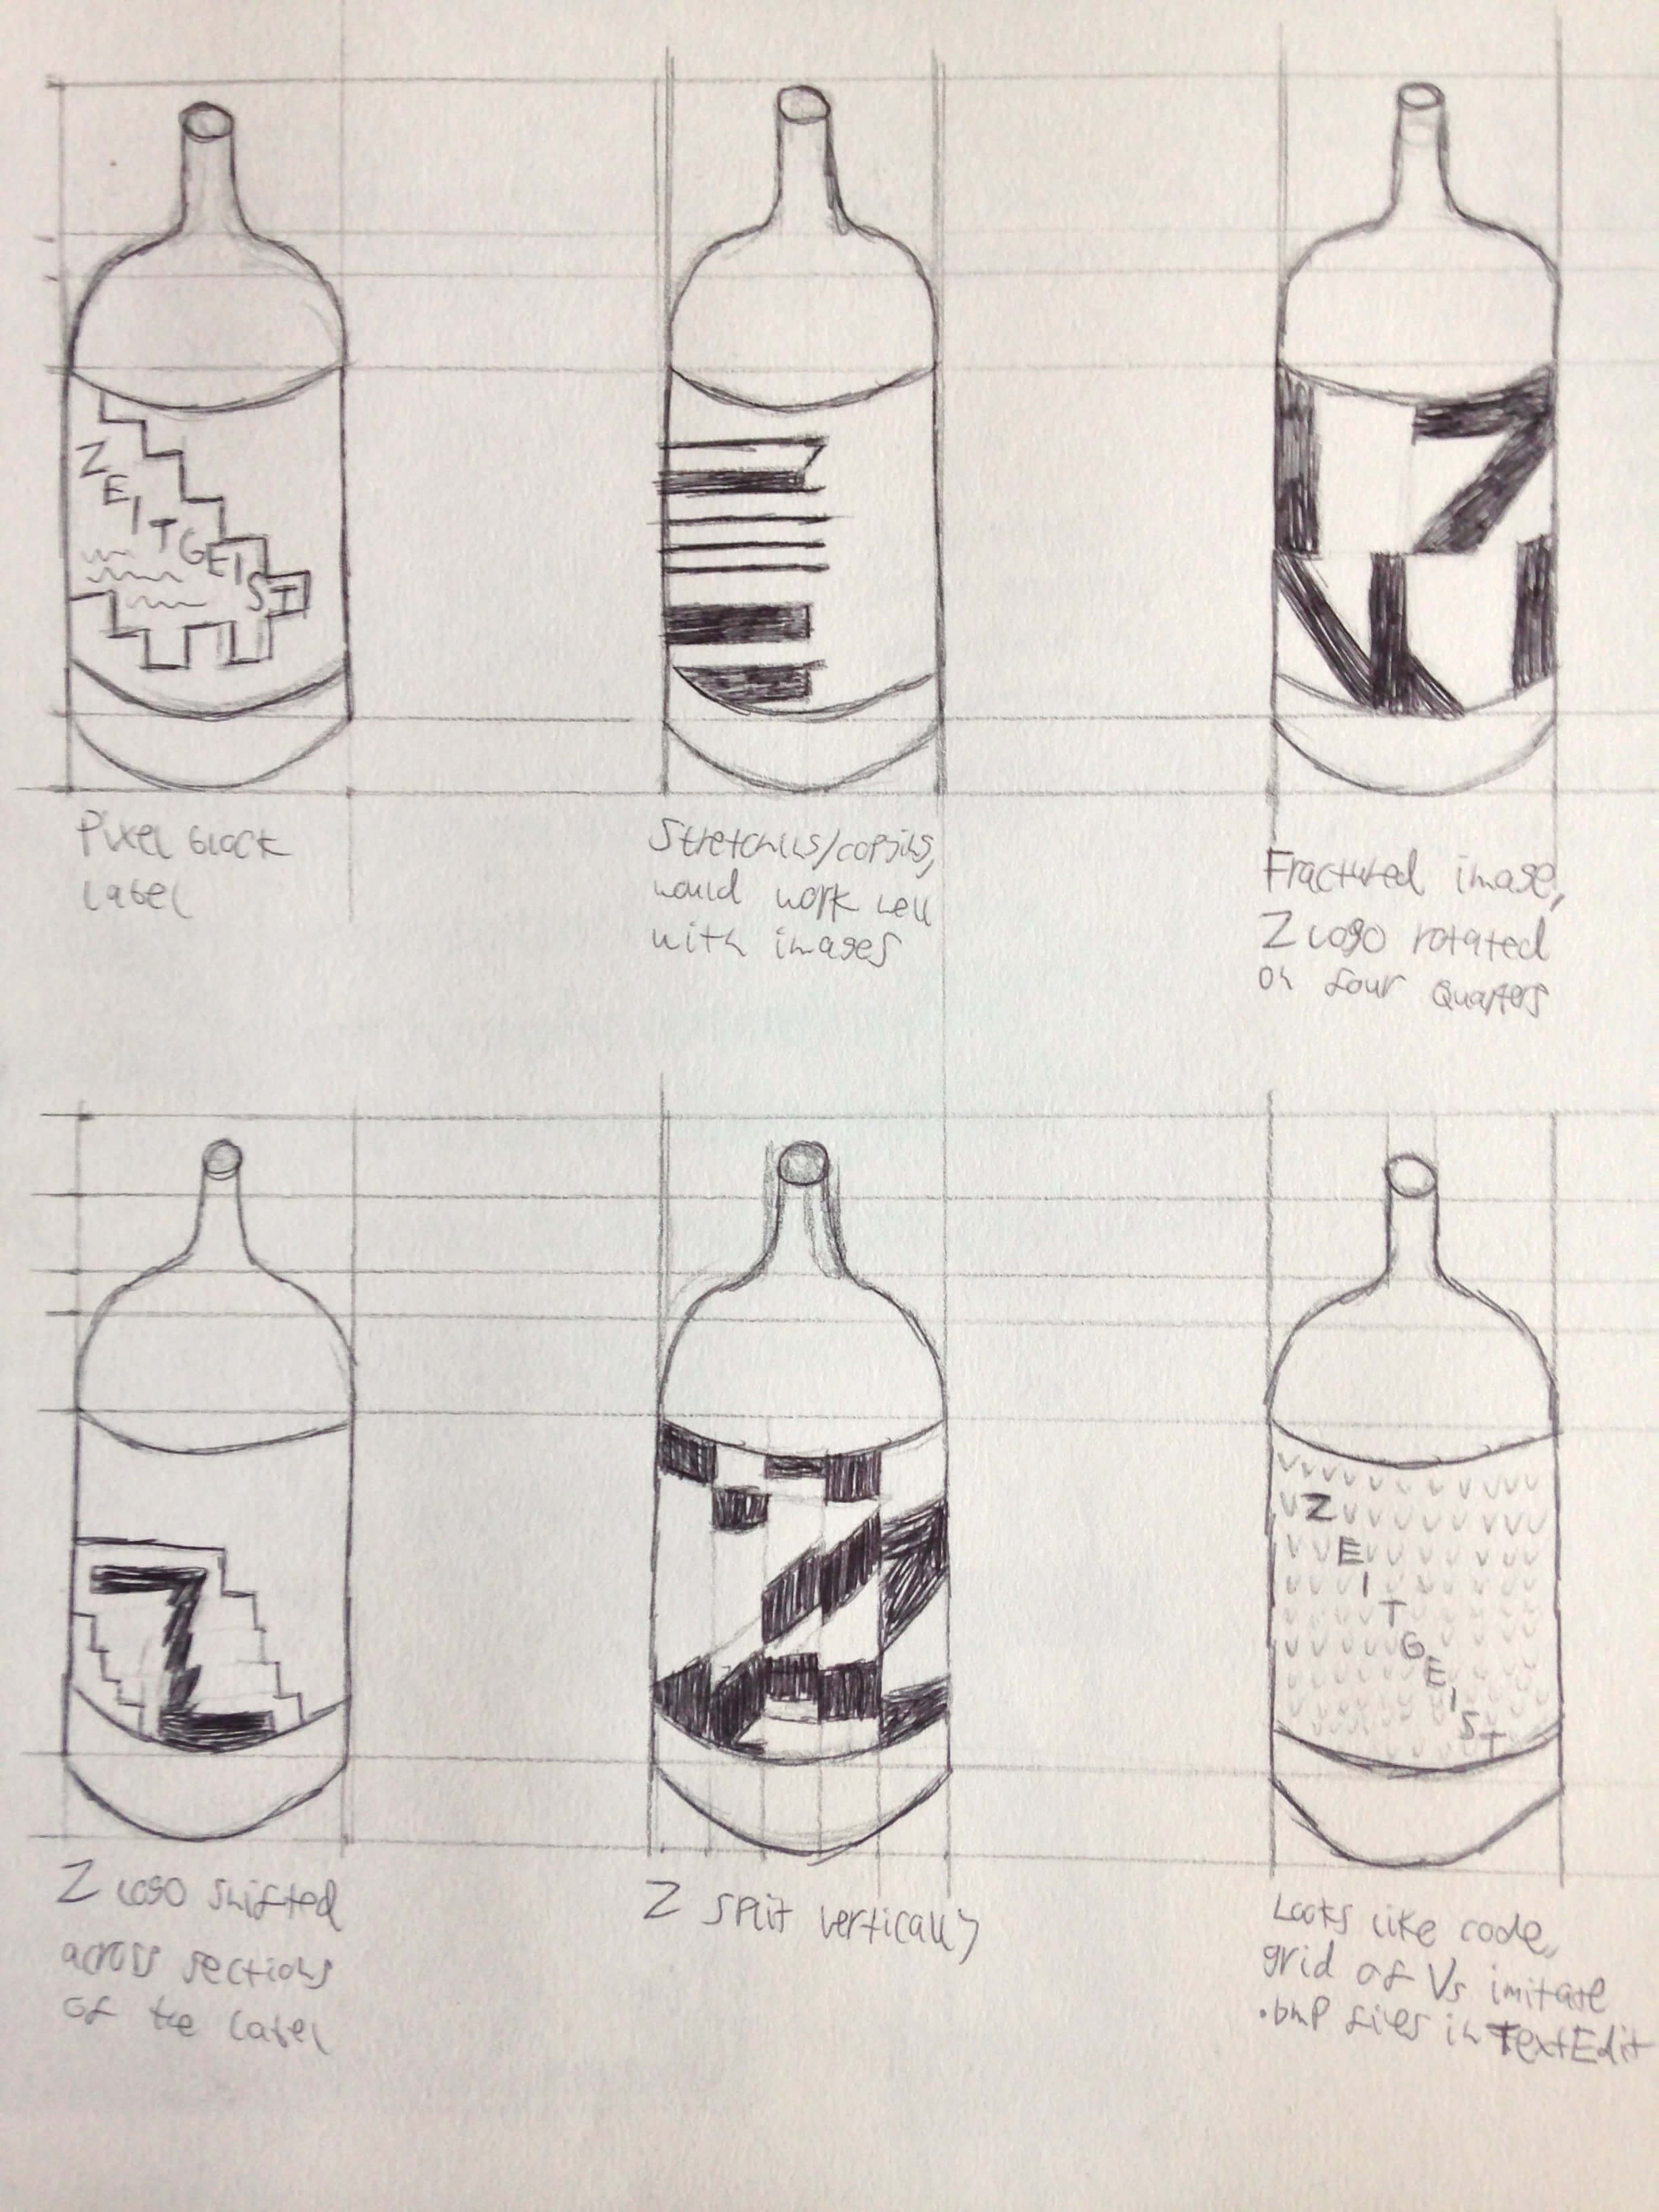 ZEITGEIST
Pixel block
label
Stretching/copying,
would work well
with images
Fractured image,
Z logo rotated
on four quarters
Z
Z logo shifted
across sections
of the label
Z split vertically
ZEITGEIST
Looks like code,
grid of Vs imitate
.bmp files in TextEdit